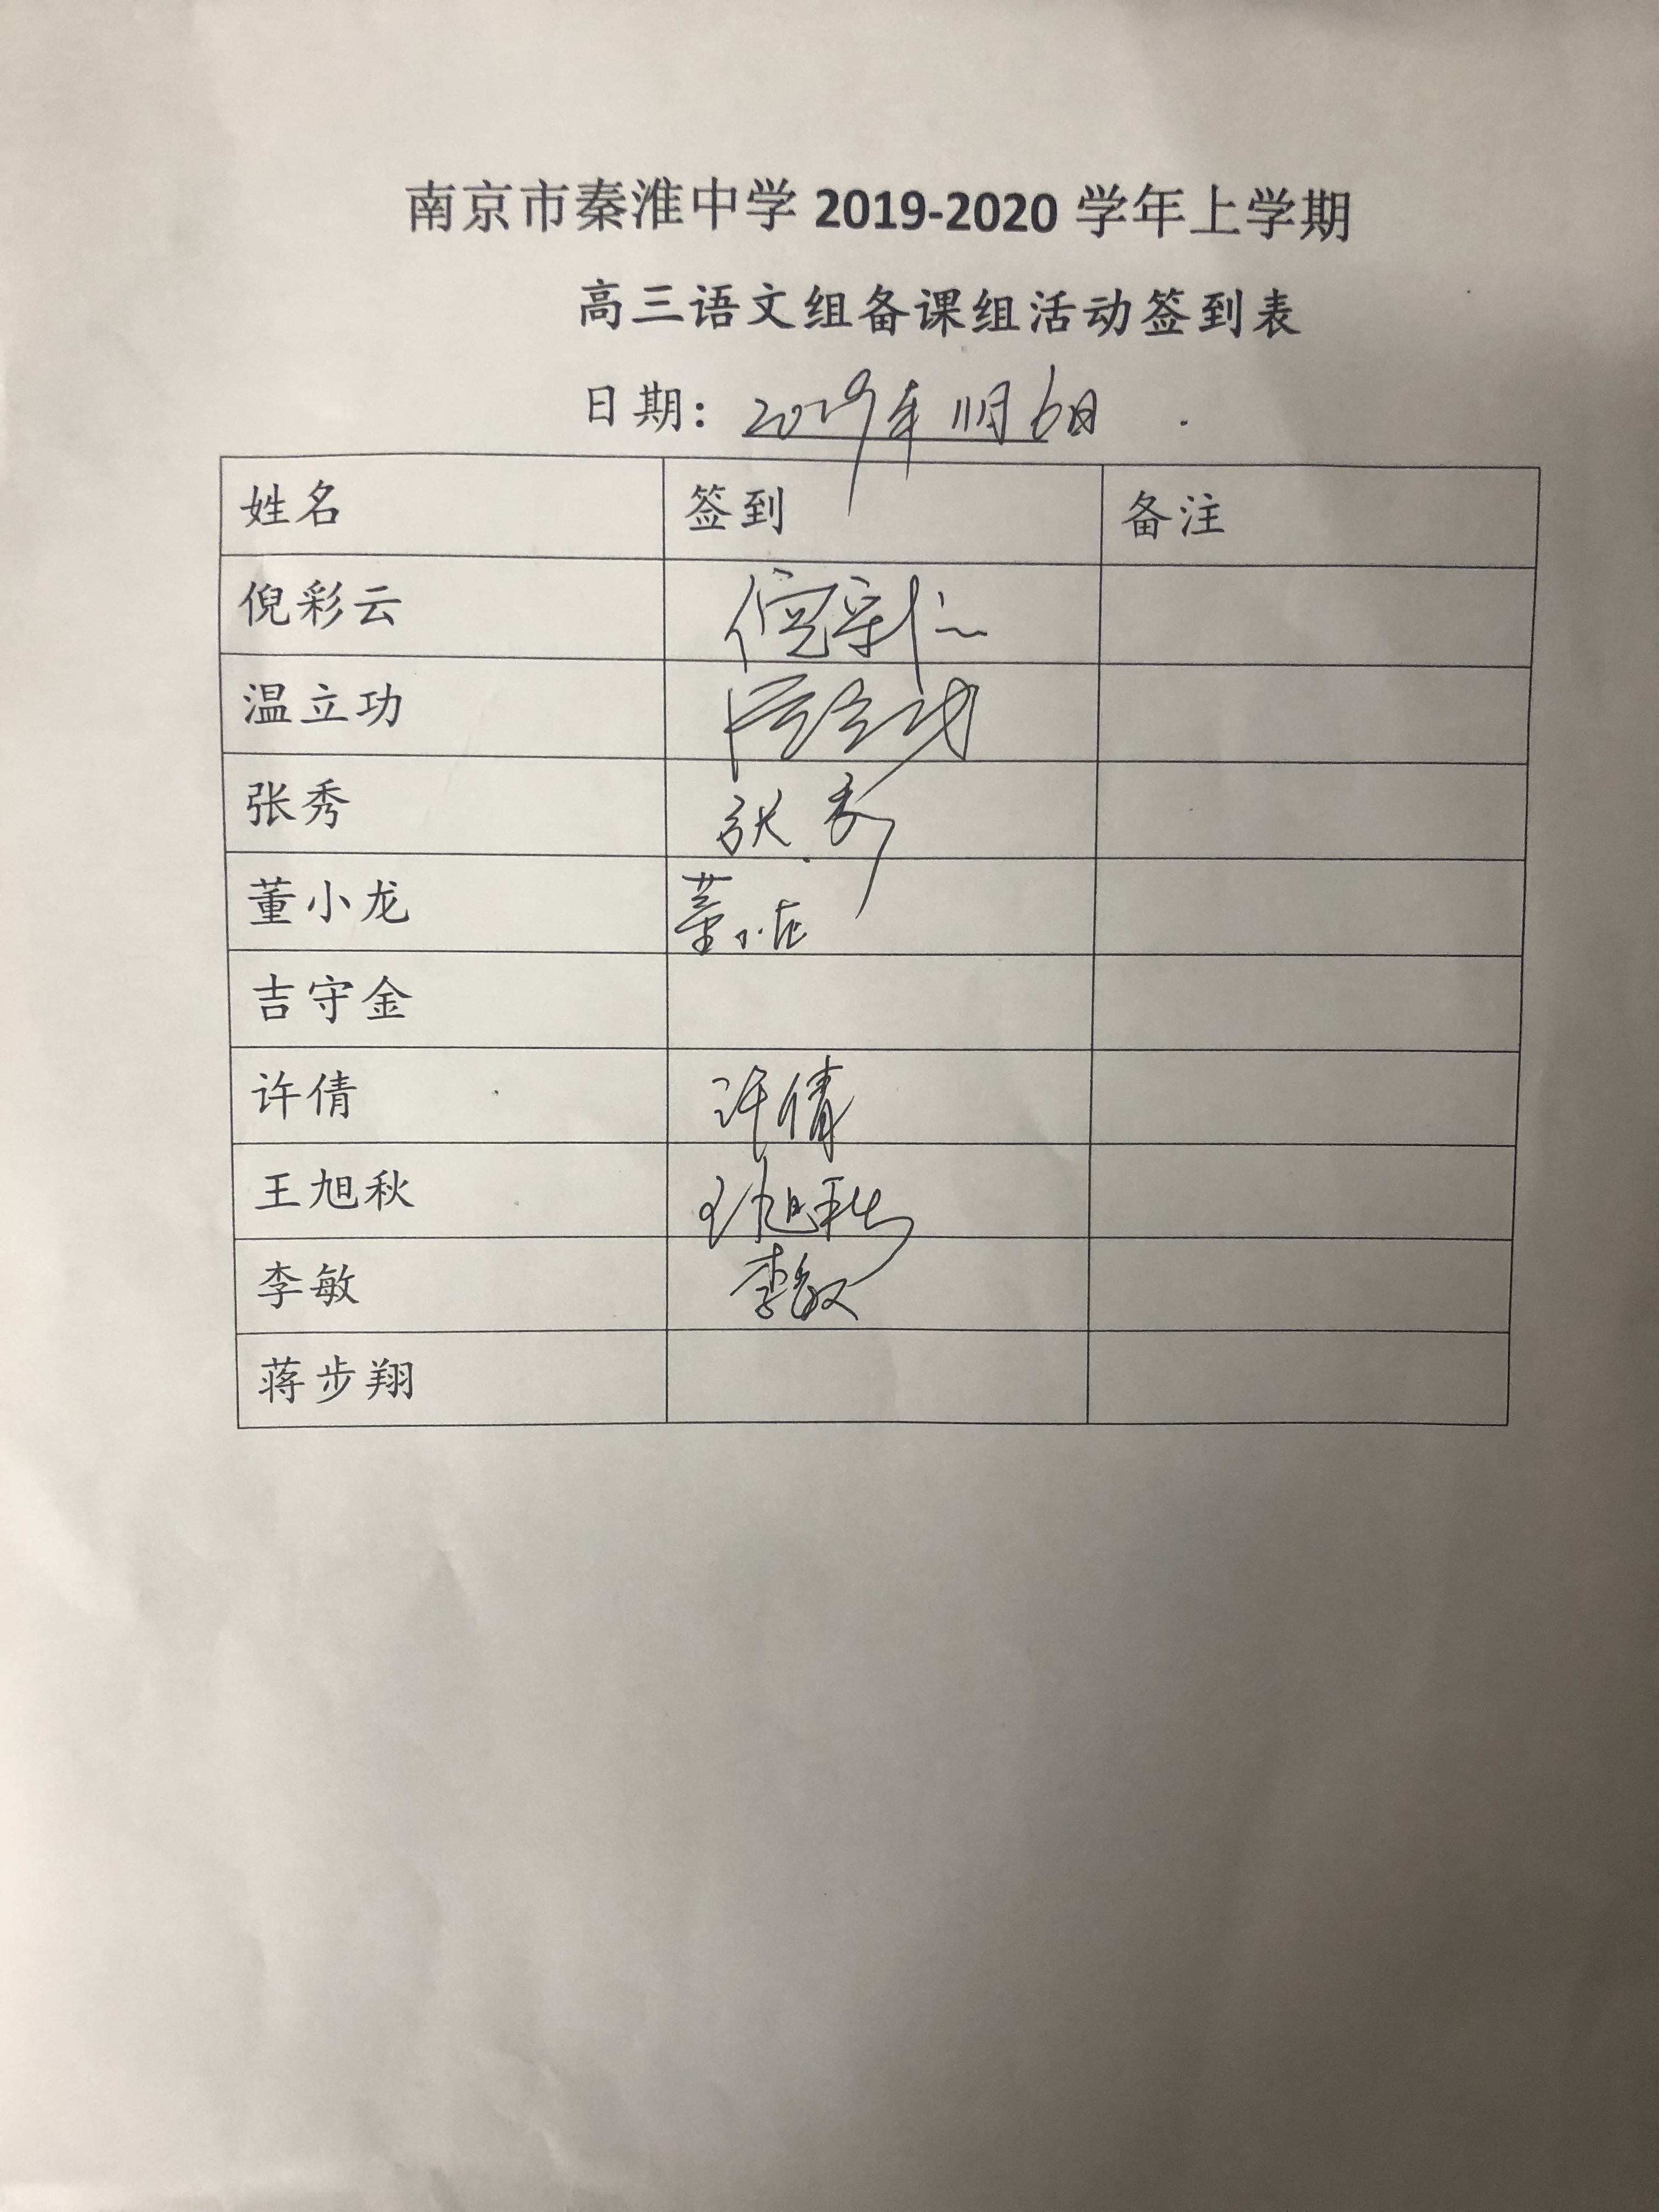 南京市秦淮中学 2019-2020 学年上学期
高三语文组备课组活动签到表
日期：2019年11月6日
姓名 签到 备注
倪彩云 倪彩云
温立功 温立功
张秀 张秀
董小龙 董小龙
吉守金
许倩 许倩
王旭秋 王旭秋
李敏 李敏
蒋步翔